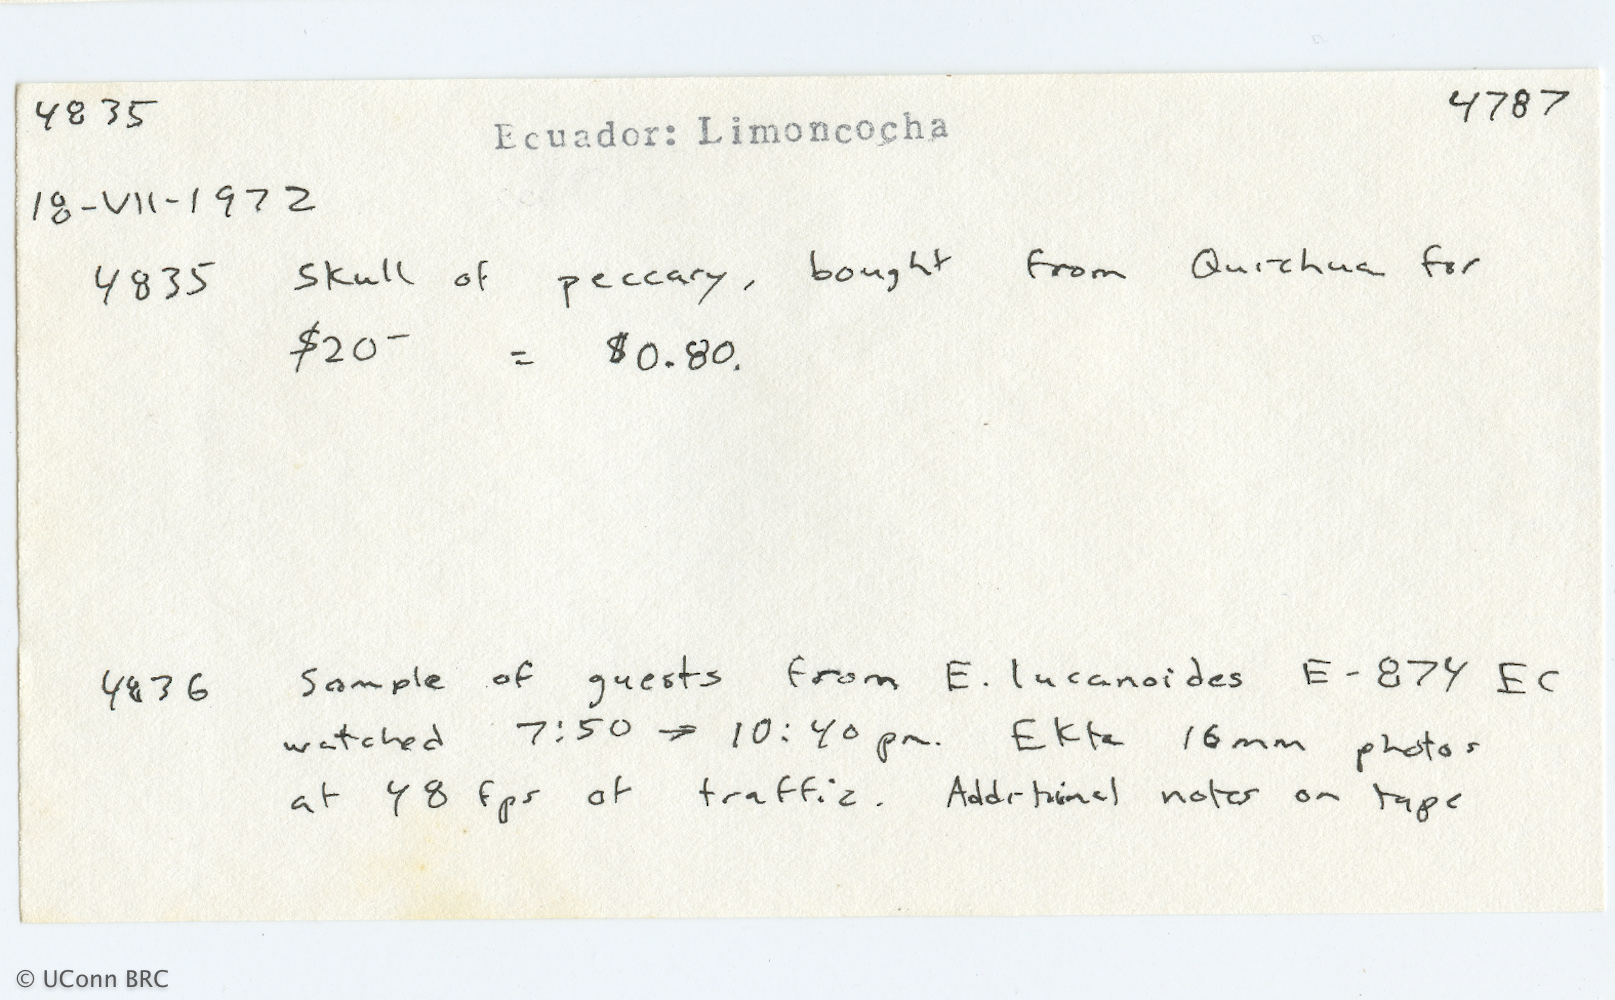 4835 Ecuador: Limoncocha 4787
18-VII-1972
4835 Skull of peccary, bought from Quichua for
$20- = $0.80.
4836 Sample of guests from E. lucanoides E-874 EC
watched 7:50 → 10:40 pm. Ekta 16mm photos
at 48 fps of traffic. Additional notes on tape
© UConn BRC